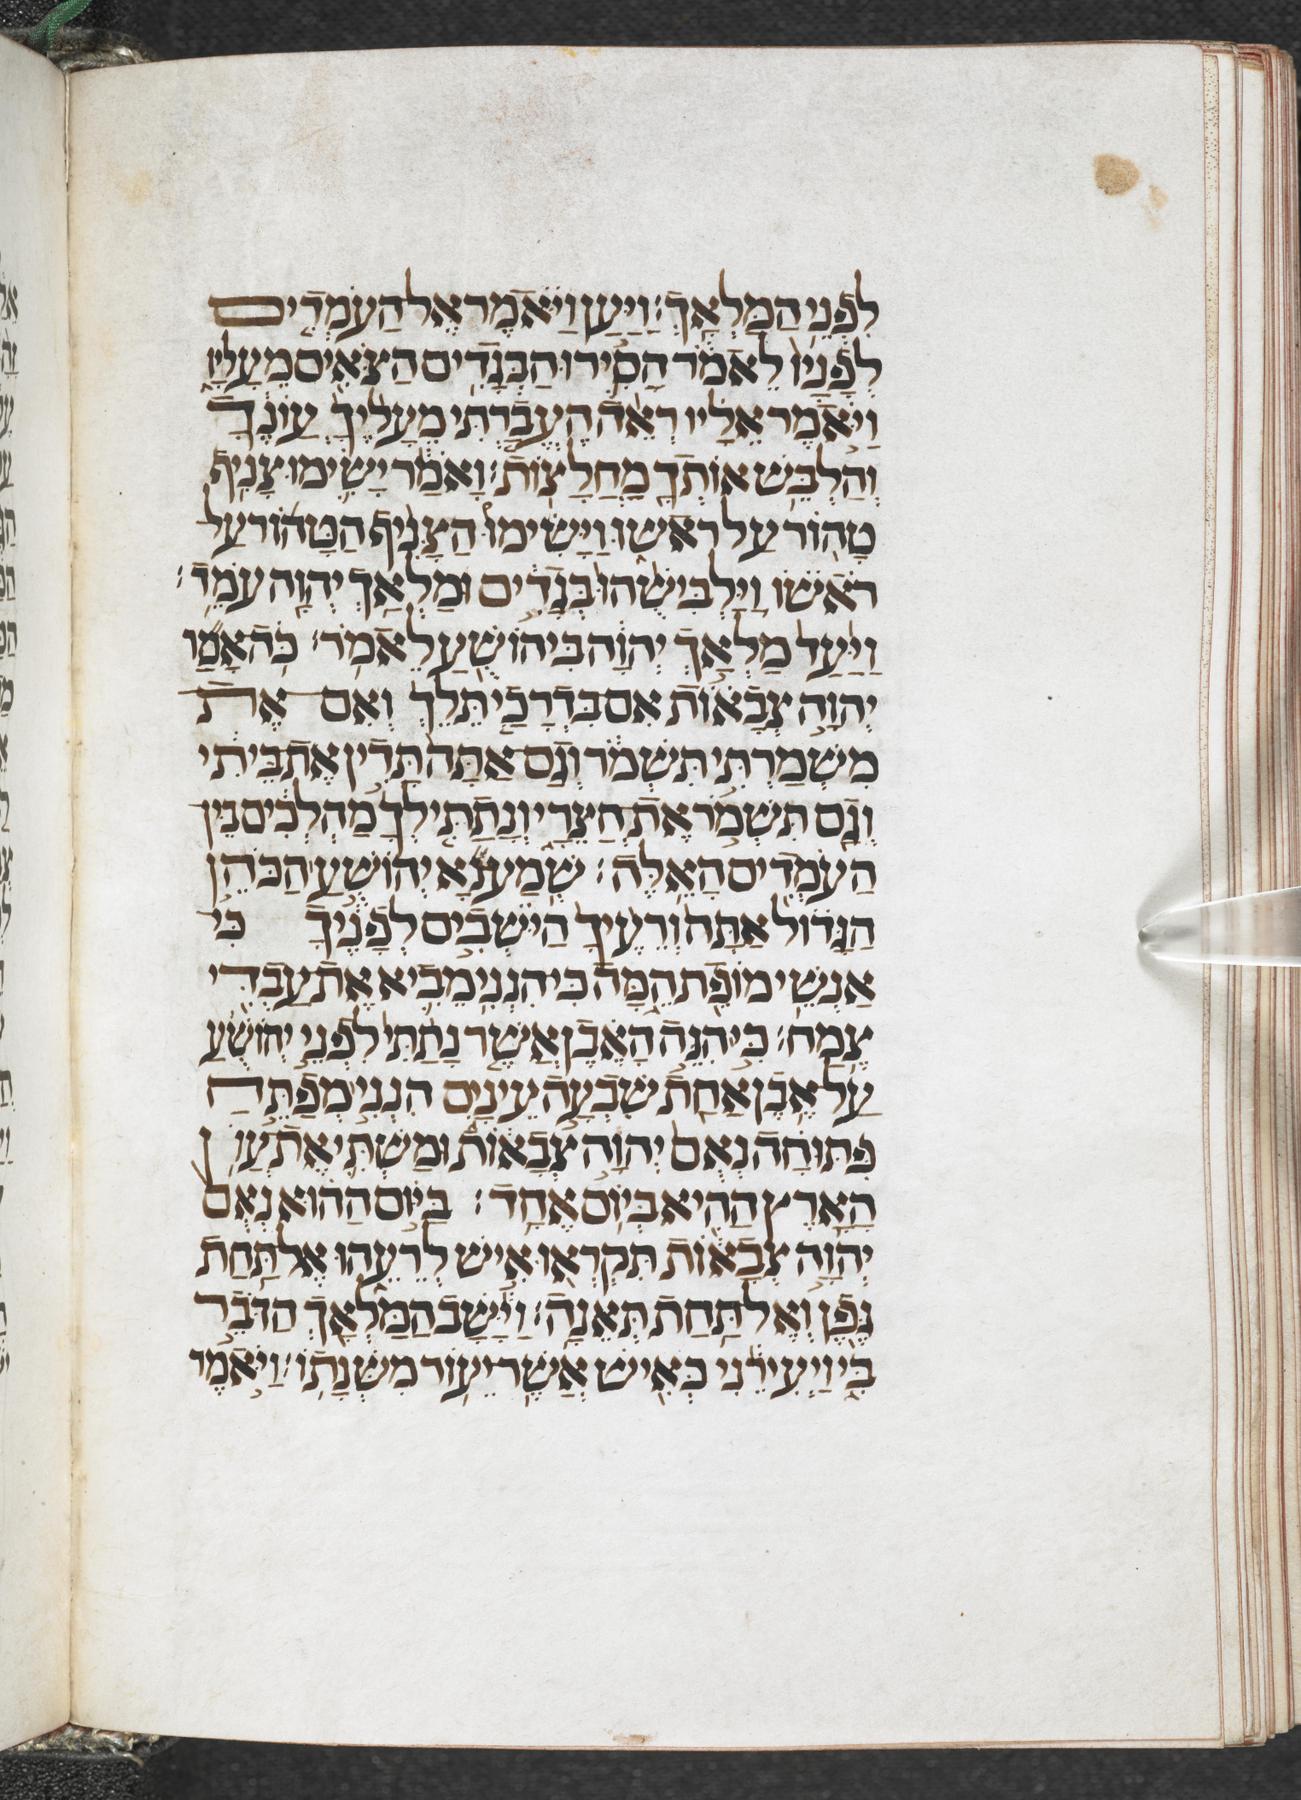 לִפְנֵי הַמַּלְאָךְ׃ וַיַּעַן וַיֹּאמֶר אֶל הָעֹמְדִים
לְפָנָיו לֵאמֹר הָסִירוּ הַבְּגָדִים הַצֹּאִים מֵעָלָיו
וַיֹּאמֶר אֵלָיו רְאֵה הֶעֱבַרְתִּי מֵעָלֶיךָ עֲוֹנֶךָ
וְהַלְבֵּשׁ אוֹתְךָ מַחֲלָצוֹת׃ וָאֹמַר יָשִׂימוּ צָנִיף
טָהוֹר עַל רֹאשׁוֹ וַיָּשִׂימוּ הַצָּנִיף הַטָּהוֹר עַל
רֹאשׁוֹ וַיַּלְבִּישֻׁהוּ בְּגָדִים וּמַלְאַךְ יְהוָה עֹמֵד׃
וַיָּעַד מַלְאַךְ יְהוָה בִּיהוֹשֻׁעַ לֵאמֹר׃ כֹּה אָמַר
יְהוָה צְבָאוֹת אִם בִּדְרָכַי תֵּלֵךְ וְאִם אֶת
מִשְׁמַרְתִּי תִשְׁמֹר וְגַם אַתָּה תָּדִין אֶת בֵּיתִי
וְגַם תִּשְׁמֹר אֶת חֲצֵרָי וְנָתַתִּי לְךָ מַהְלְכִים בֵּין
הָעֹמְדִים הָאֵלֶּה׃ שְׁמַע נָא יְהוֹשֻׁעַ הַכֹּהֵן
הַגָּדוֹל אַתָּה וְרֵעֶיךָ הַיֹּשְׁבִים לְפָנֶיךָ כִּי
אַנְשֵׁי מוֹפֵת הֵמָּה כִּי הִנְנִי מֵבִיא אֶת עַבְדִּי
צֶמַח׃ כִּי הִנֵּה הָאֶבֶן אֲשֶׁר נָתַתִּי לִפְנֵי יְהוֹשֻׁעַ
עַל אֶבֶן אַחַת שִׁבְעָה עֵינָיִם הִנְנִי מְפַתֵּחַ
פִּתּוּחָהּ נְאֻם יְהוָה צְבָאוֹת וּמַשְׁתִּי אֶת עֲוֹן
הָאָרֶץ הַהִיא בְּיוֹם אֶחָד׃ בַּיּוֹם הַהוּא נְאֻם
יְהוָה צְבָאוֹת תִּקְרְאוּ אִישׁ לְרֵעֵהוּ אֶל תַּחַת
גֶּפֶן וְאֶל תַּחַת תְּאֵנָה׃ וַיָּשָׁב הַמַּלְאָךְ הַדֹּבֵר
בִּי וַיְעִירֵנִי כְּאִישׁ אֲשֶׁר יֵעוֹר מִשְּׁנָתוֹ׃ וַיֹּאמֶר